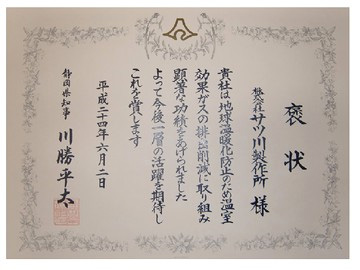 褒状
株式会社 サツ川製作所 様
貴社は地球温暖化防止のため温室
効果ガスの排出削減に取り組み
顕著な功績をあげられました
よって今後一層の活躍を期待し
これを賞します
平成二十四年六月二日
静岡県知事 川勝平太